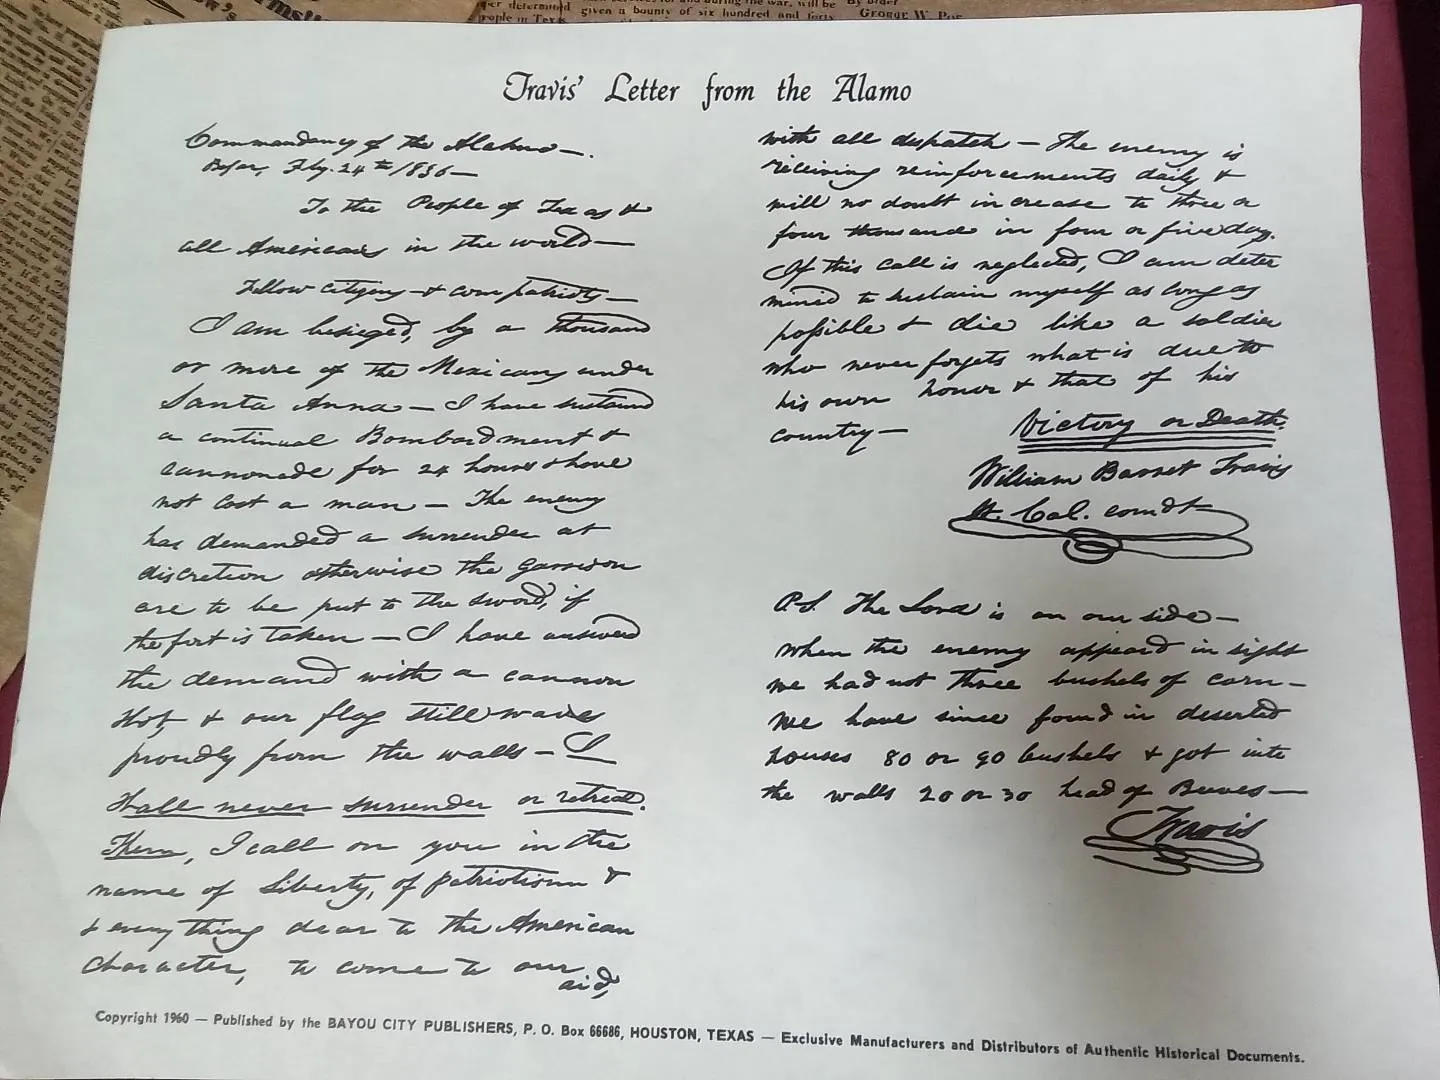 per determined
people in Texas
given a bounty of six hundred and forty
By order
George W. Poe
Travis' Letter from the Alamo
Commandancy of the Alamo—.
Bejar, Fby. 24th 1836—
To the People of Texas &
all Americans in the world—
Fellow citizens & compatriots—
I am besieged, by a thousand
or more of the Mexicans under
Santa Anna — I have sustained
a continual Bombardment &
cannonade for 24 hours & have
not lost a man — The enemy
has demanded a surrender at
discretion otherwise the garrison
are to be put to the sword, if
the fort is taken — I have answered
the demand with a cannon
shot, & our flag still waves
proudly from the walls — I
shall never surrender or retreat.
Then, I call on you in the
name of Liberty, of patriotism &
& every thing dear to the American
character, to come to our
aid,
with all dispatch — The enemy is
receiving reinforcements daily &
will no doubt increase to three or
four thousand in four or five days.
If this call is neglected, I am deter
mined to sustain myself as long as
possible & die like a soldier
who never forgets what is due to
his own honor & that of his
country —
Victory or Death.
William Barret Travis
Lt. Col. comdt
P.S. The Lord is on our side—
when the enemy appeard in sight
we had not three bushels of corn—
we have since found in deserted
houses 80 or 90 bushels & got into
the walls 20 or 30 head of Beeves—
Travis
Copyright 1960 — Published by the BAYOU CITY PUBLISHERS, P. O. Box 66686, HOUSTON, TEXAS — Exclusive Manufacturers and Distributors of Authentic Historical Documents.